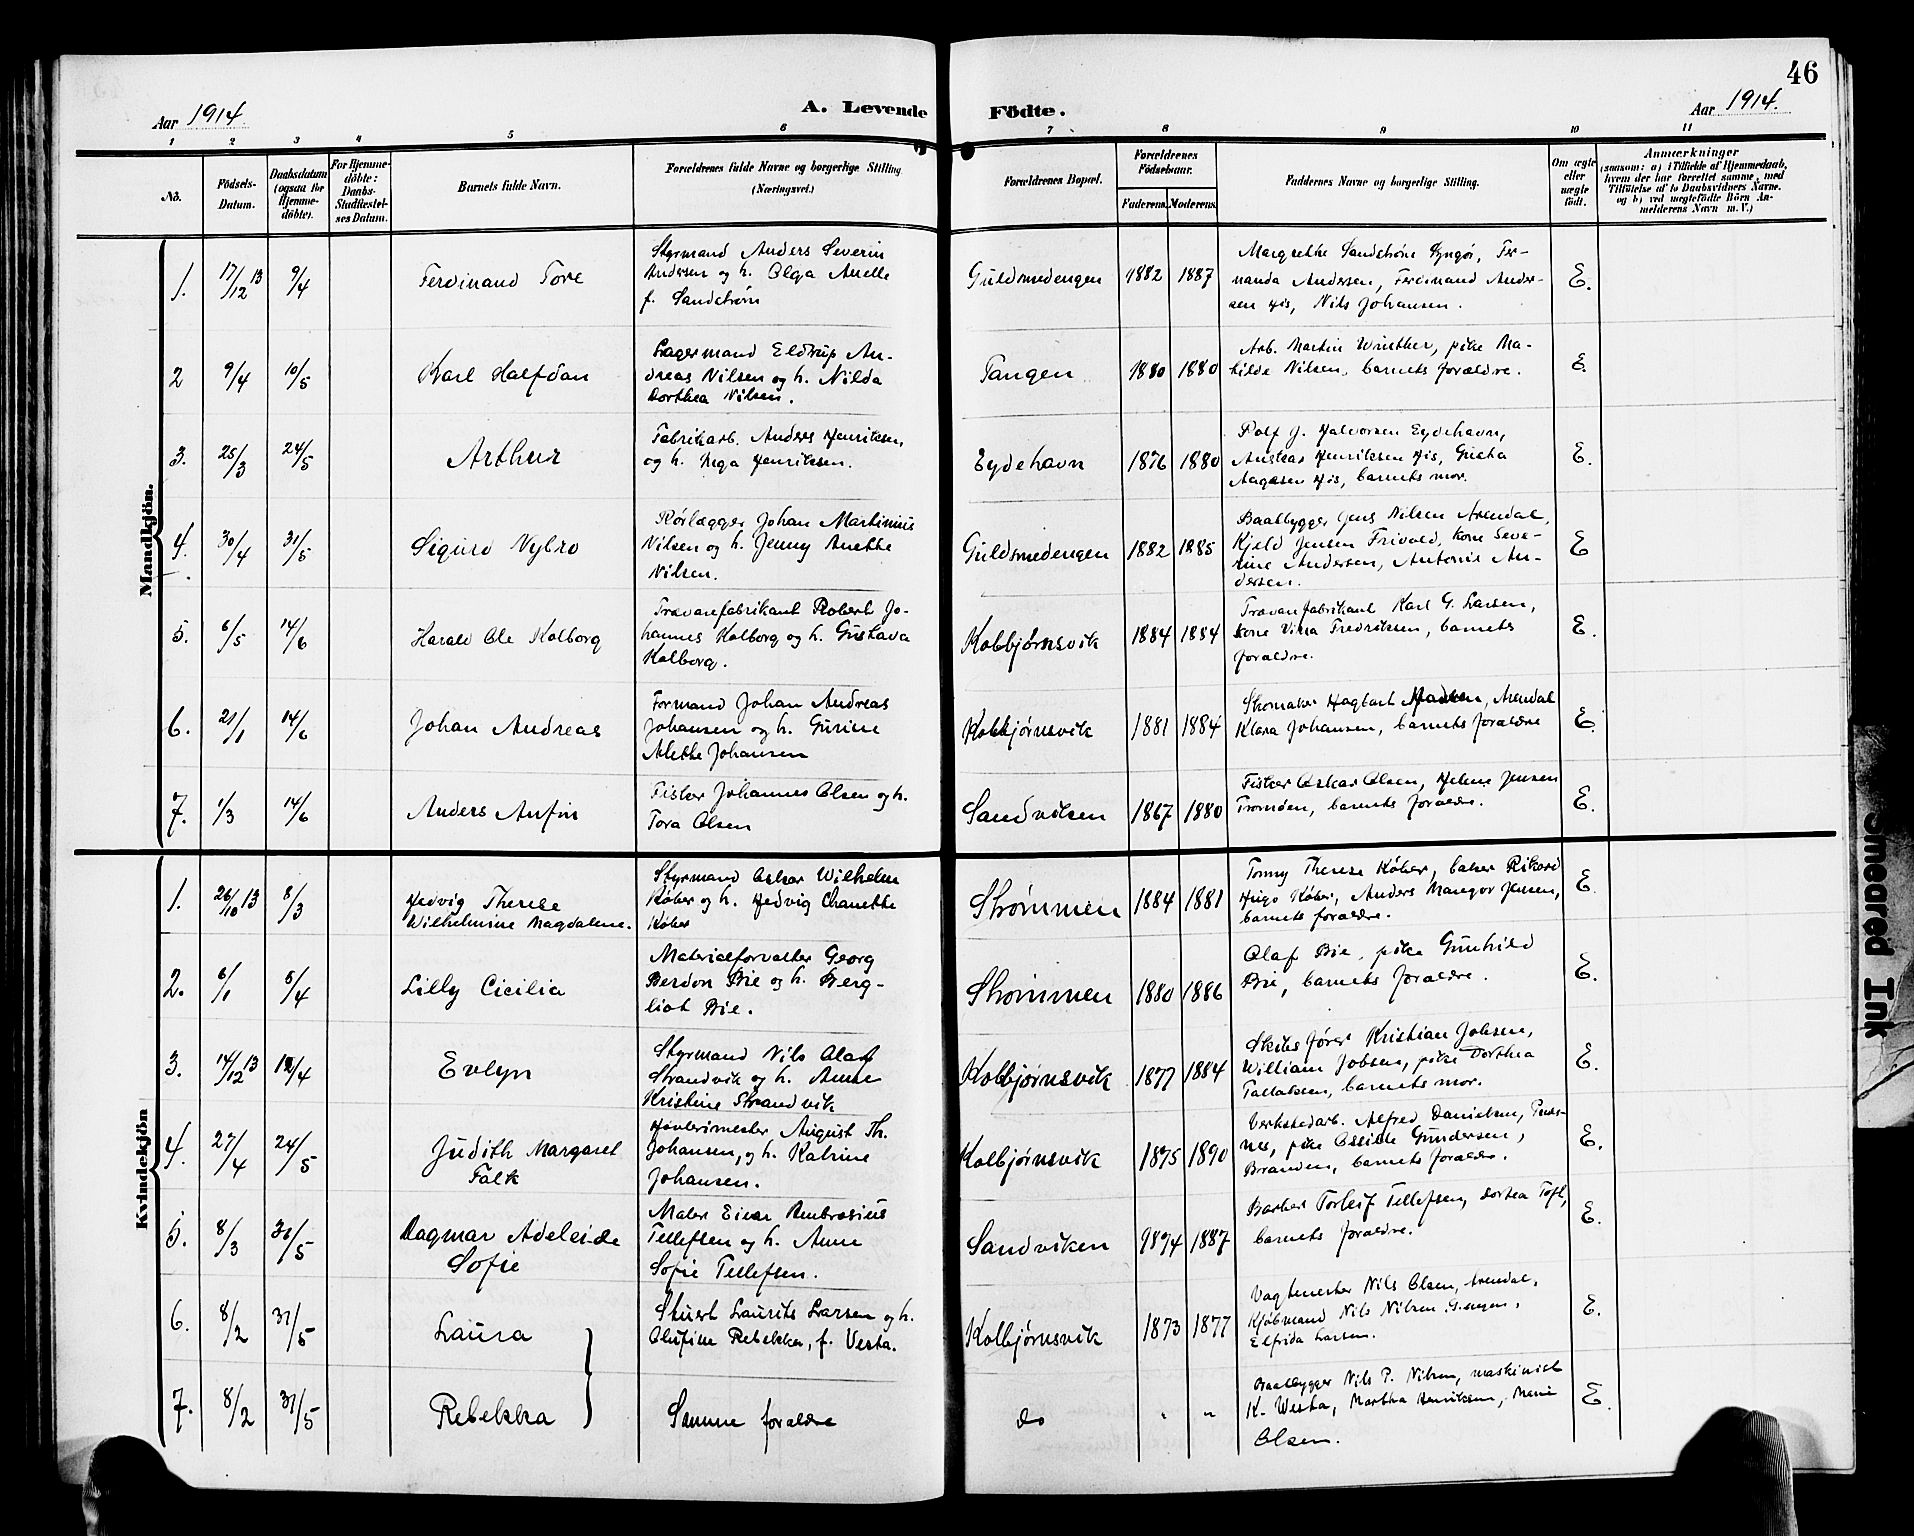 46
Aar 1914.
A. Levende
Födte.
Aar 1914.
1 2 3 4 5 6 7 8 9 10 11
No.
Födsels-Datum.
Daabsdatum (ogsaa for Hjemme-döbte).
For Hjemme-döbte: Daabs-Stadfæstel-ses Datum.
Barnets fulde Navn.
Forældrenes fulde Navne og borgerlige Stilling (Næringsvei.)
Forældrenes Bopæl.
Forældrenes Födselsaar.
Faderens. Moderens.
Faddernes Navne og borgerlige Stilling.
Om ægte eller uægte født.
Anmærkninger
(saasom: a) i Tilfælde af Hjemmedaab,
hvem der har forrettet samme, med
Tilføielse af to Daabsvidners Navne.
og b) ved uægtefödte Börn An-
melderens Navn m. V.)
Mandkjön.
1. 17/12 13 9/4 Ferdinand Tore
Styrmand Anders Severin
Andersen og h. Olga Anelle
f. Sandstrøm
Guldsmedengen 1882 1887
Margrethe Sandstrøm Lyngør, Fer-
nanda Andersen, Ferdinand Ander-
sen His, Nils Johansen. E.
2 9/4 10/5 Karl Halfdan
Lagermand Eldrup An-
dreas Nilsen og h. Nilda
Dorthea Nilsen.
Tangen 1880 1880
Arb. Martin Winther, pike Ma-
hilde Nilsen, barnets forældre. E.
3. 25/3 24/5 Arthur
Fabrikarb. Anders Henriksen,
og h. Inga Henriksen.
Eydehavn 1876 1880
Rolf J. Halvorsen Eydehavn,
Andreas Henriksen His,
Aagesen His, barnets mor. E.
4. 30/4 31/5 Sigurd Nybro
Rørlægger Johan Martinius
Nilsen og h. Jenny Anette
Nilsen.
Guldsmedengen 1882 1885
Baatbygger Jens Nilsen Arendal,
Kjeld Jensen Frivold, kone Seve-
rine Andersen, Antonie An-
dersen. E
5. 6/5 14/6 Harald Ole Kolborg
Trævarefabrikant Robert Jo-
hannes Kolborg og h. Gustava
Kolborg.
Kolbjørnsvik 1884 1884
Trævarefabrikant Karl G. Larsen,
kone Vilma Fredriksen, barnets
forældre. E.
6. 21/1 14/6 Johan Andreas
Formand Johan Andreas
Johansen og h. Gurine
Alette Johansen
Kolbjørnsvik 1881 1884
Skomaker Hagbart Madsen, Arendal
Klara Johansen, barnets forældre E.
7. 1/3 14/6 Anders Anfin
Fisker Johannes Olsen og h.
Tora Olsen
Sandviken 1867 1880
Fisker Oskar Olsen, Helene Jensen
Tromøen, barnets forældre. E.
Kvindekjön
1. 26/10 13 8/3 Hedvig Therese
Wilhelmine Magdalene.
Styrmand Oskar Wilhelm
Køber og h. Hedvig Chanette
Køber
Strømmen 1884 1881
Tonny Therese Køber, baker Rikard
Hugo Køber, Anders Mangor Jensen,
barnets forældre. E.
2. 6/1 5/4 Lilly Cicilia
Materialforvalter Georg
Berdon Bie og h. Berg-
liot Bie.
Strømmen 1880 1886
Olaf Bie, pike Gunhild
Bie, barnets forældre. E.
3. 14/12 13 /4 Evelyn
Styrmand Nils Olaf
Strandvik og h. Anne
Kristine Strandvik
Kolbjørnsvik 1877 1884
Skibsfører Kristian Jobsen,
William Jobsen, pike Dorthea
Tallaksen, barnets mor. E.
4. 27/4 24/5 Judith Margaret
Falk
Høvlerimester August Th.
Johansen, og h. Katrine
Johansen.
Kolbjørnsvik 1875 1890
Verkstedarb. Alfred Danielsen, Pusnes,
pike Gundersen,
Branden, barnets forældre. E.
5. 8/3 31/5 Dagmar Adeleide
Sofie
Maler Einar Ambrosius
Tellefsen og h. Anne
Sofie Tellefsen.
Sandviken 9874 1887
Barber Torleif Tellefsen, Dortea Toft,
barnets forældre. E.
6. 8/2 31/5 Laura
Stuert Laurits Larsen og h.
Olufine Rebekka, f. Vesta.
Kolbjørnsvik 1873 1877
Vagtmester Nils Olsen, Arendal,
Kjøbmand Nils Nilsen
Elfrida Larsen. E.
7. 8/2 31/5 Rebekka
Samme forældre
do " "
Baatbygger Nils P. Nilsen, maskinist
K. Westa, Martha Henriksen, Marie
Olsen. E.
Smeared Ink